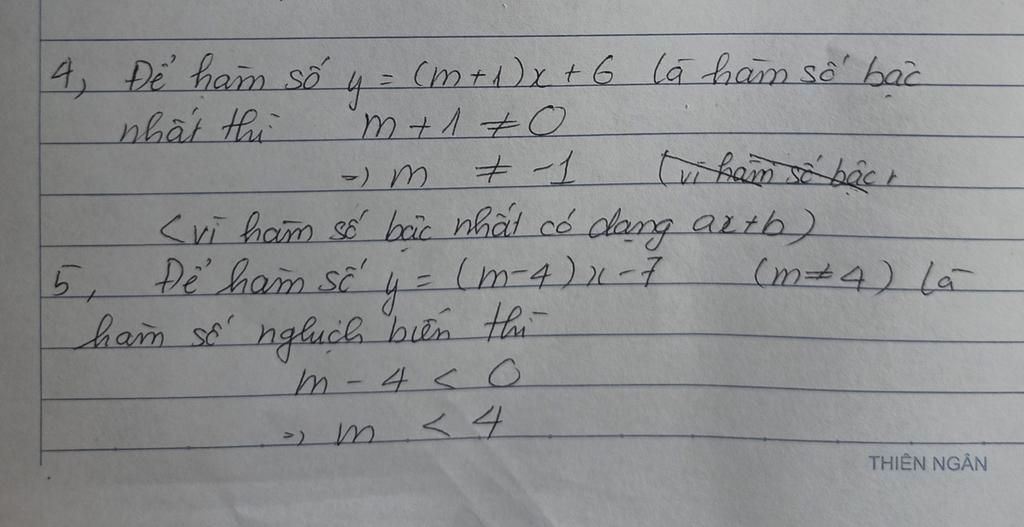 4, Để hàm số y = (m+1)x + 6 là hàm số bậc
nhất thì m + 1 ≠ 0
=> m ≠ -1 (vì hàm số bậc
(vì hàm số bậc nhất có dạng ax+b)
5, Để hàm số y = (m-4)x - 7 (m≠4) là
hàm số nghịch biến thì
m - 4 < 0
=> m < 4
THIÊN NGÂN